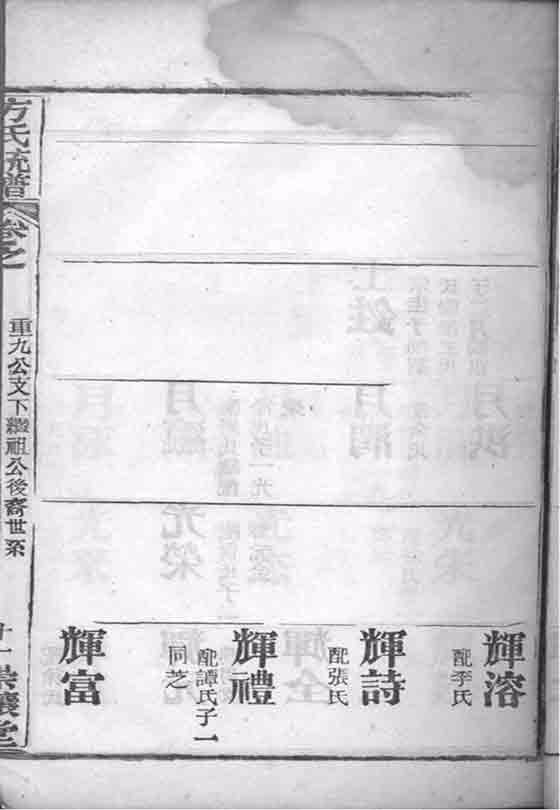 輝溶
配李氏
輝詩
配張氏
輝禮
配譚氏子一
同芝
輝富
方氏統譜
卷之
重九公支下繼祖公後裔世系
十一